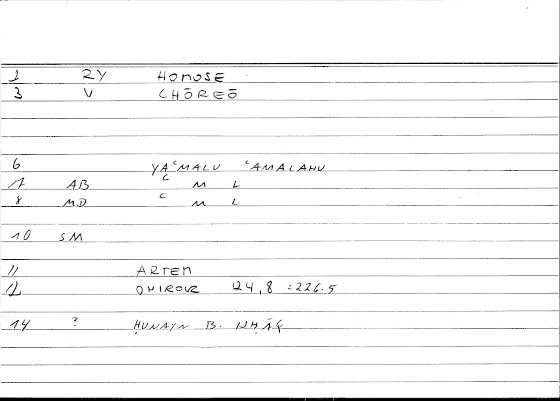 1 RY HOMOSE
3 V CHŌREŌ
6 YAʿMALU ʿAMALAHU
7 AB ʿ M L
8 MD ʿ M L
10 SM
11 ARTEM
12 ONIROCR 124,8 = 226.5
14 ? ḤUNAYN B. ISḤĀQ